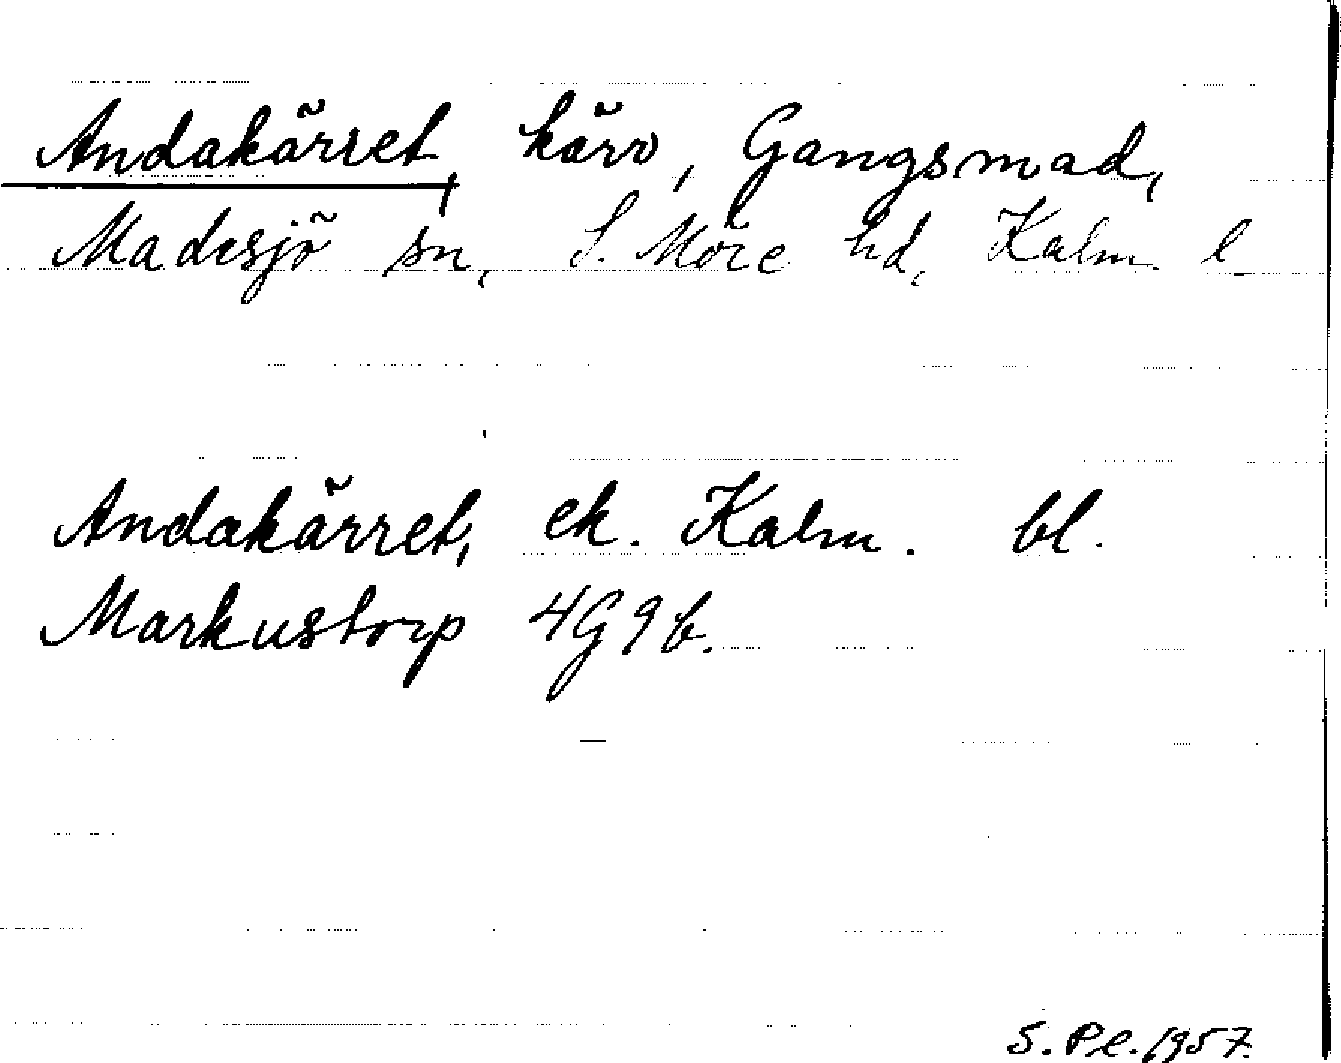 Andakärret, kärr, Gangsmad,
Madesjö sn, S. Möre hd, Kalm. l
Andakärret, ek. Kalm. bl.
Markustorp 4G9b.
S. Pl. 1957